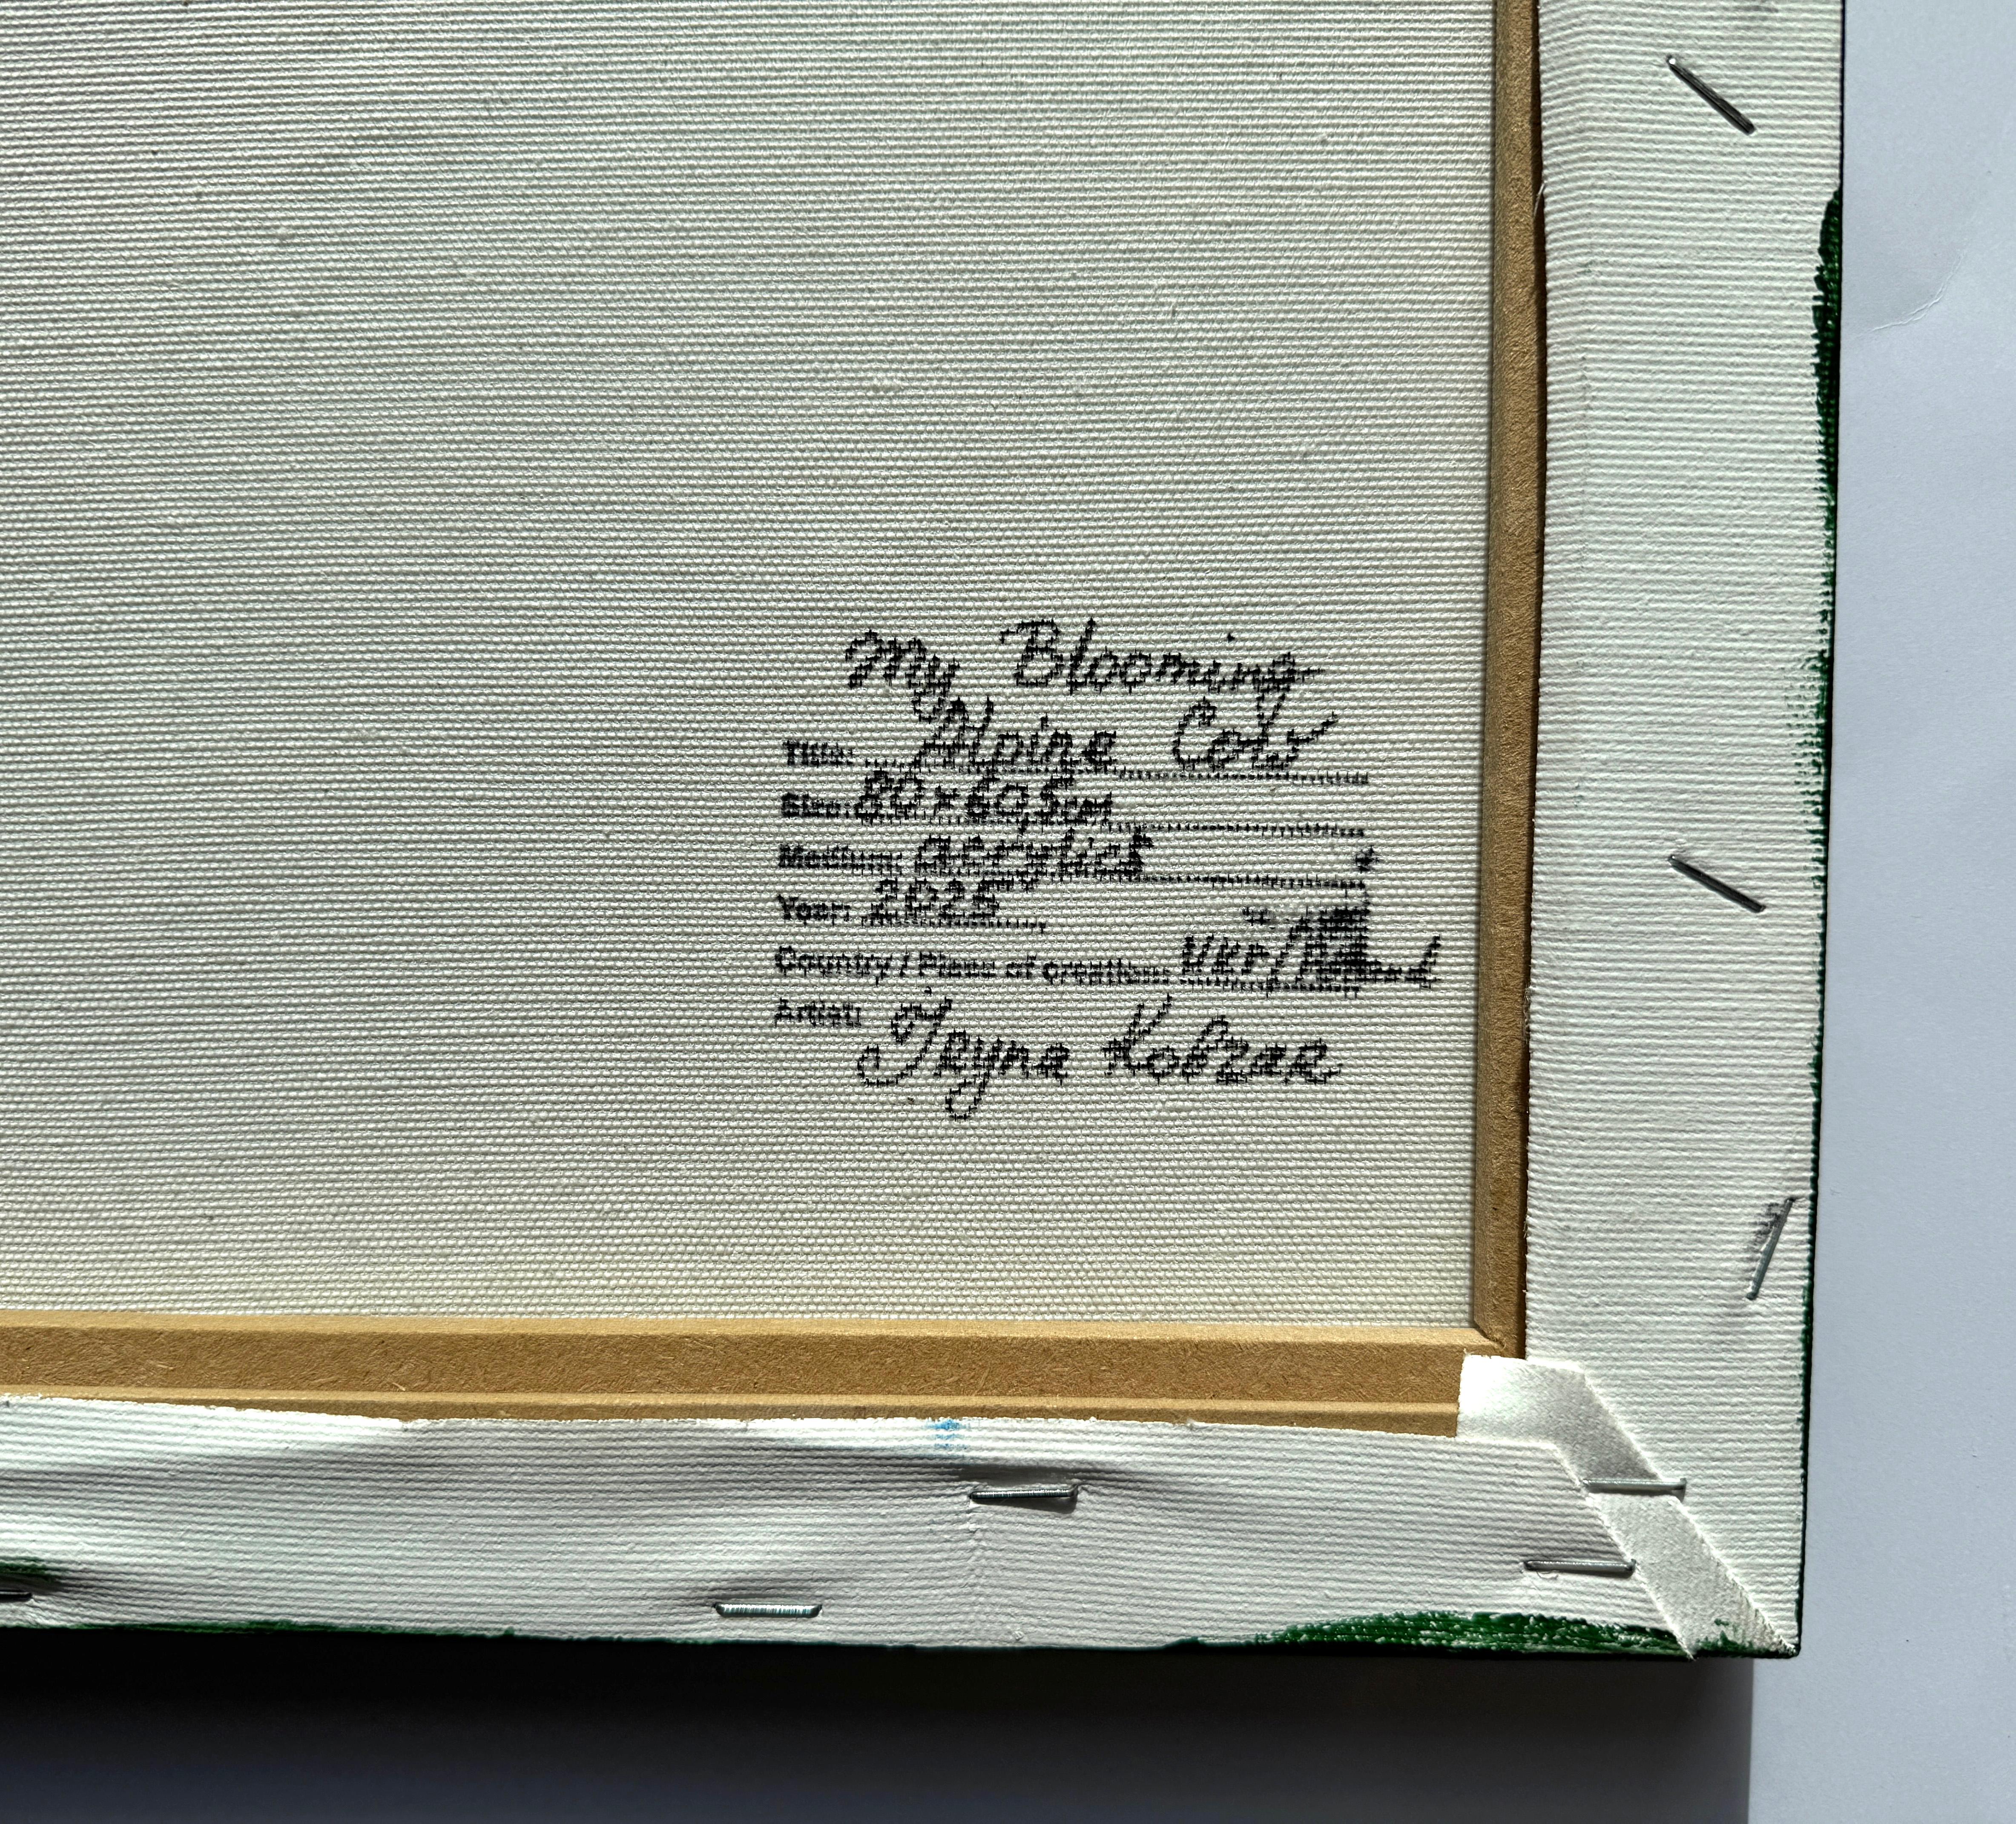 My Blooming
Title: Alpine Cow
Size: 80x60,5cm
Medium: acrylics
Year: 2025
Country / Place of creation:
Artist: Iryna Kobzar